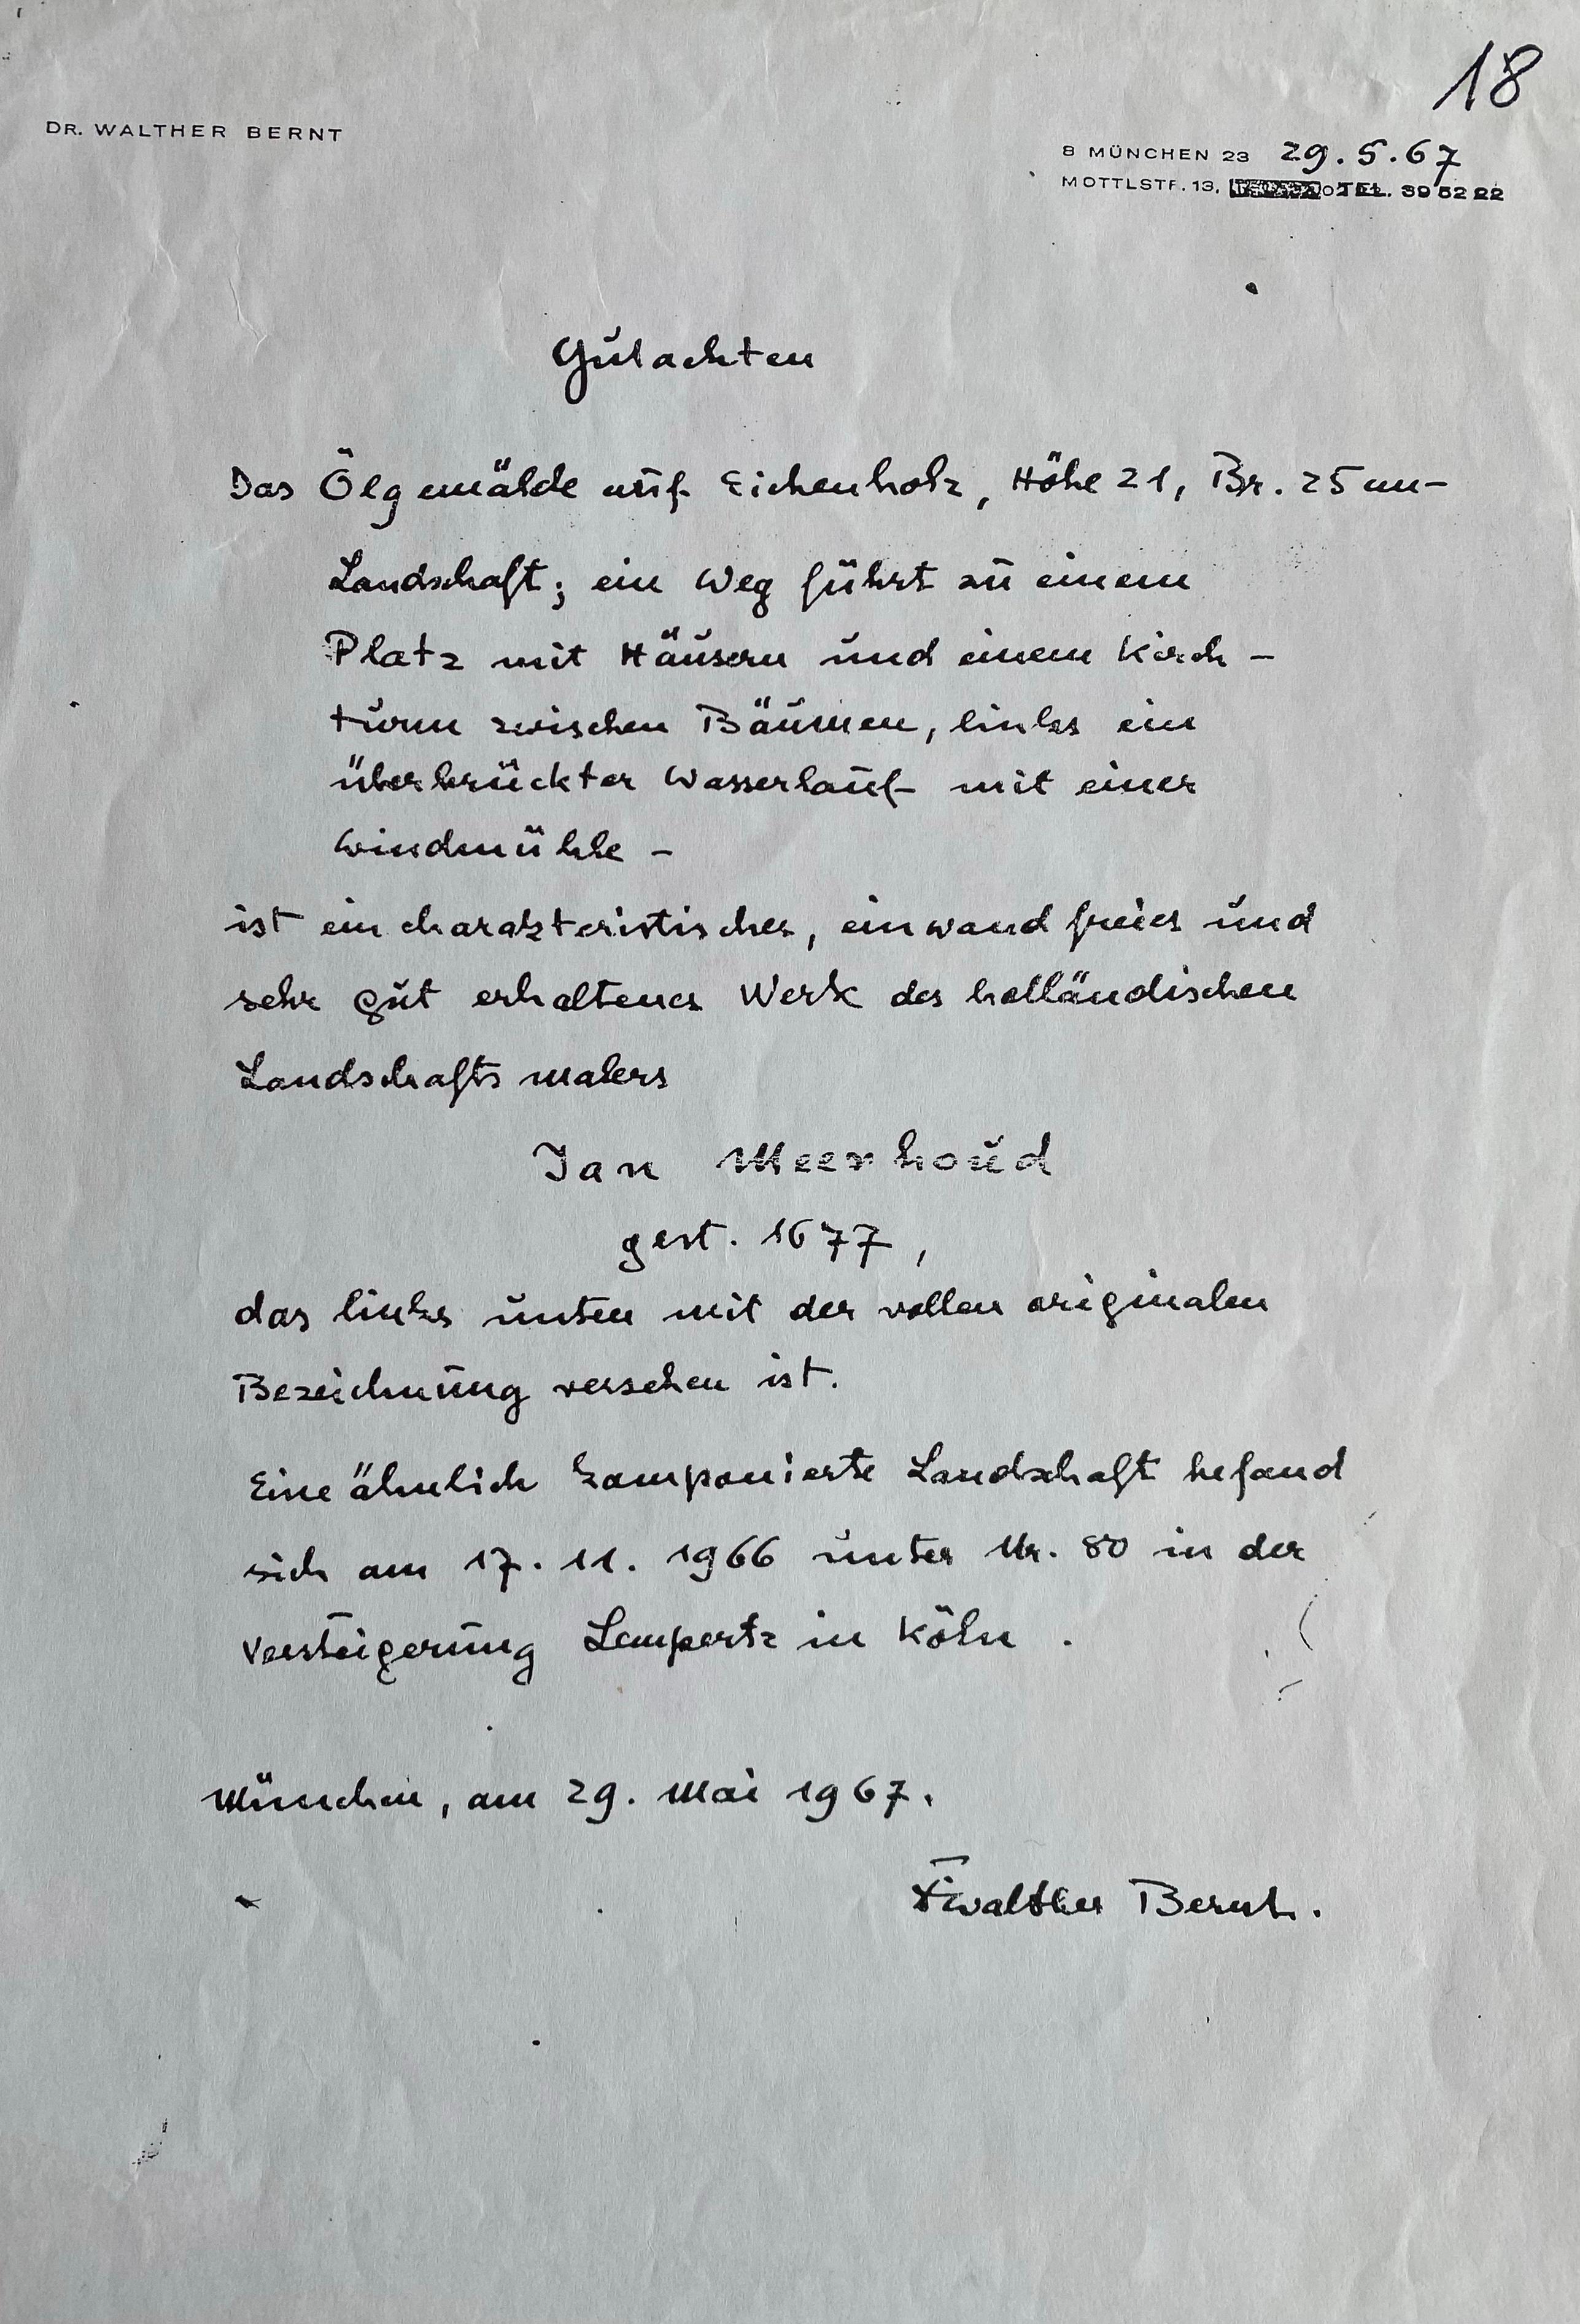 18
DR. WALTHER BERNT
8 MÜNCHEN 23 29.5.67
MOTTLSTR. 13, TEL. 39 52 22
Gutachten
Das Ölgemälde auf Eichenholz, Höhe 21, Br. 25 cm -
Landschaft; ein Weg führt zu einem
Platz mit Häusern und einem Kirch-
turm zwischen Bäumen, links ein
überbrückter Wasserlauf mit einer
Windmühle -
ist ein charakteristisches, einwandfreies und
sehr gut erhaltenes Werk des holländischen
Landschaftsmalers
Jan Meerhoud
gest. 1677,
das links unten mit der vollen originalen
Bezeichnung versehen ist.
Eine ähnlich komponierte Landschaft befand
sich am 17. 11. 1966 unter Nr. 80 in der
Versteigerung Lempertz in Köln.
München, am 29. Mai 1967.
Walther Bernt.